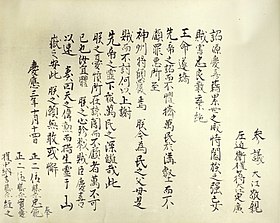 参議大江敬親
左近衛権中将源定広
詔源慶喜藉累世之威恃闔族之強妄
賊害忠良數棄絶
王命遂矯
先帝之詔而不懼擠萬民於溝壑而不
顧罪悪所至
神州将傾覆焉 朕今為民之父母是
賊而不討何以上謝
先帝之霊下報萬民之深讐哉此
朕之憂憤所在諒闇而不顧者萬不可
已也汝宜体 朕之心殄戮賊臣慶喜
以速奏回天之偉勲而措生霊于山
嶽之安此 朕之願無敢或懈
慶應三年十月十四日
正二位藤原忠能
正二位藤原實愛
権中納言藤原経之
奉